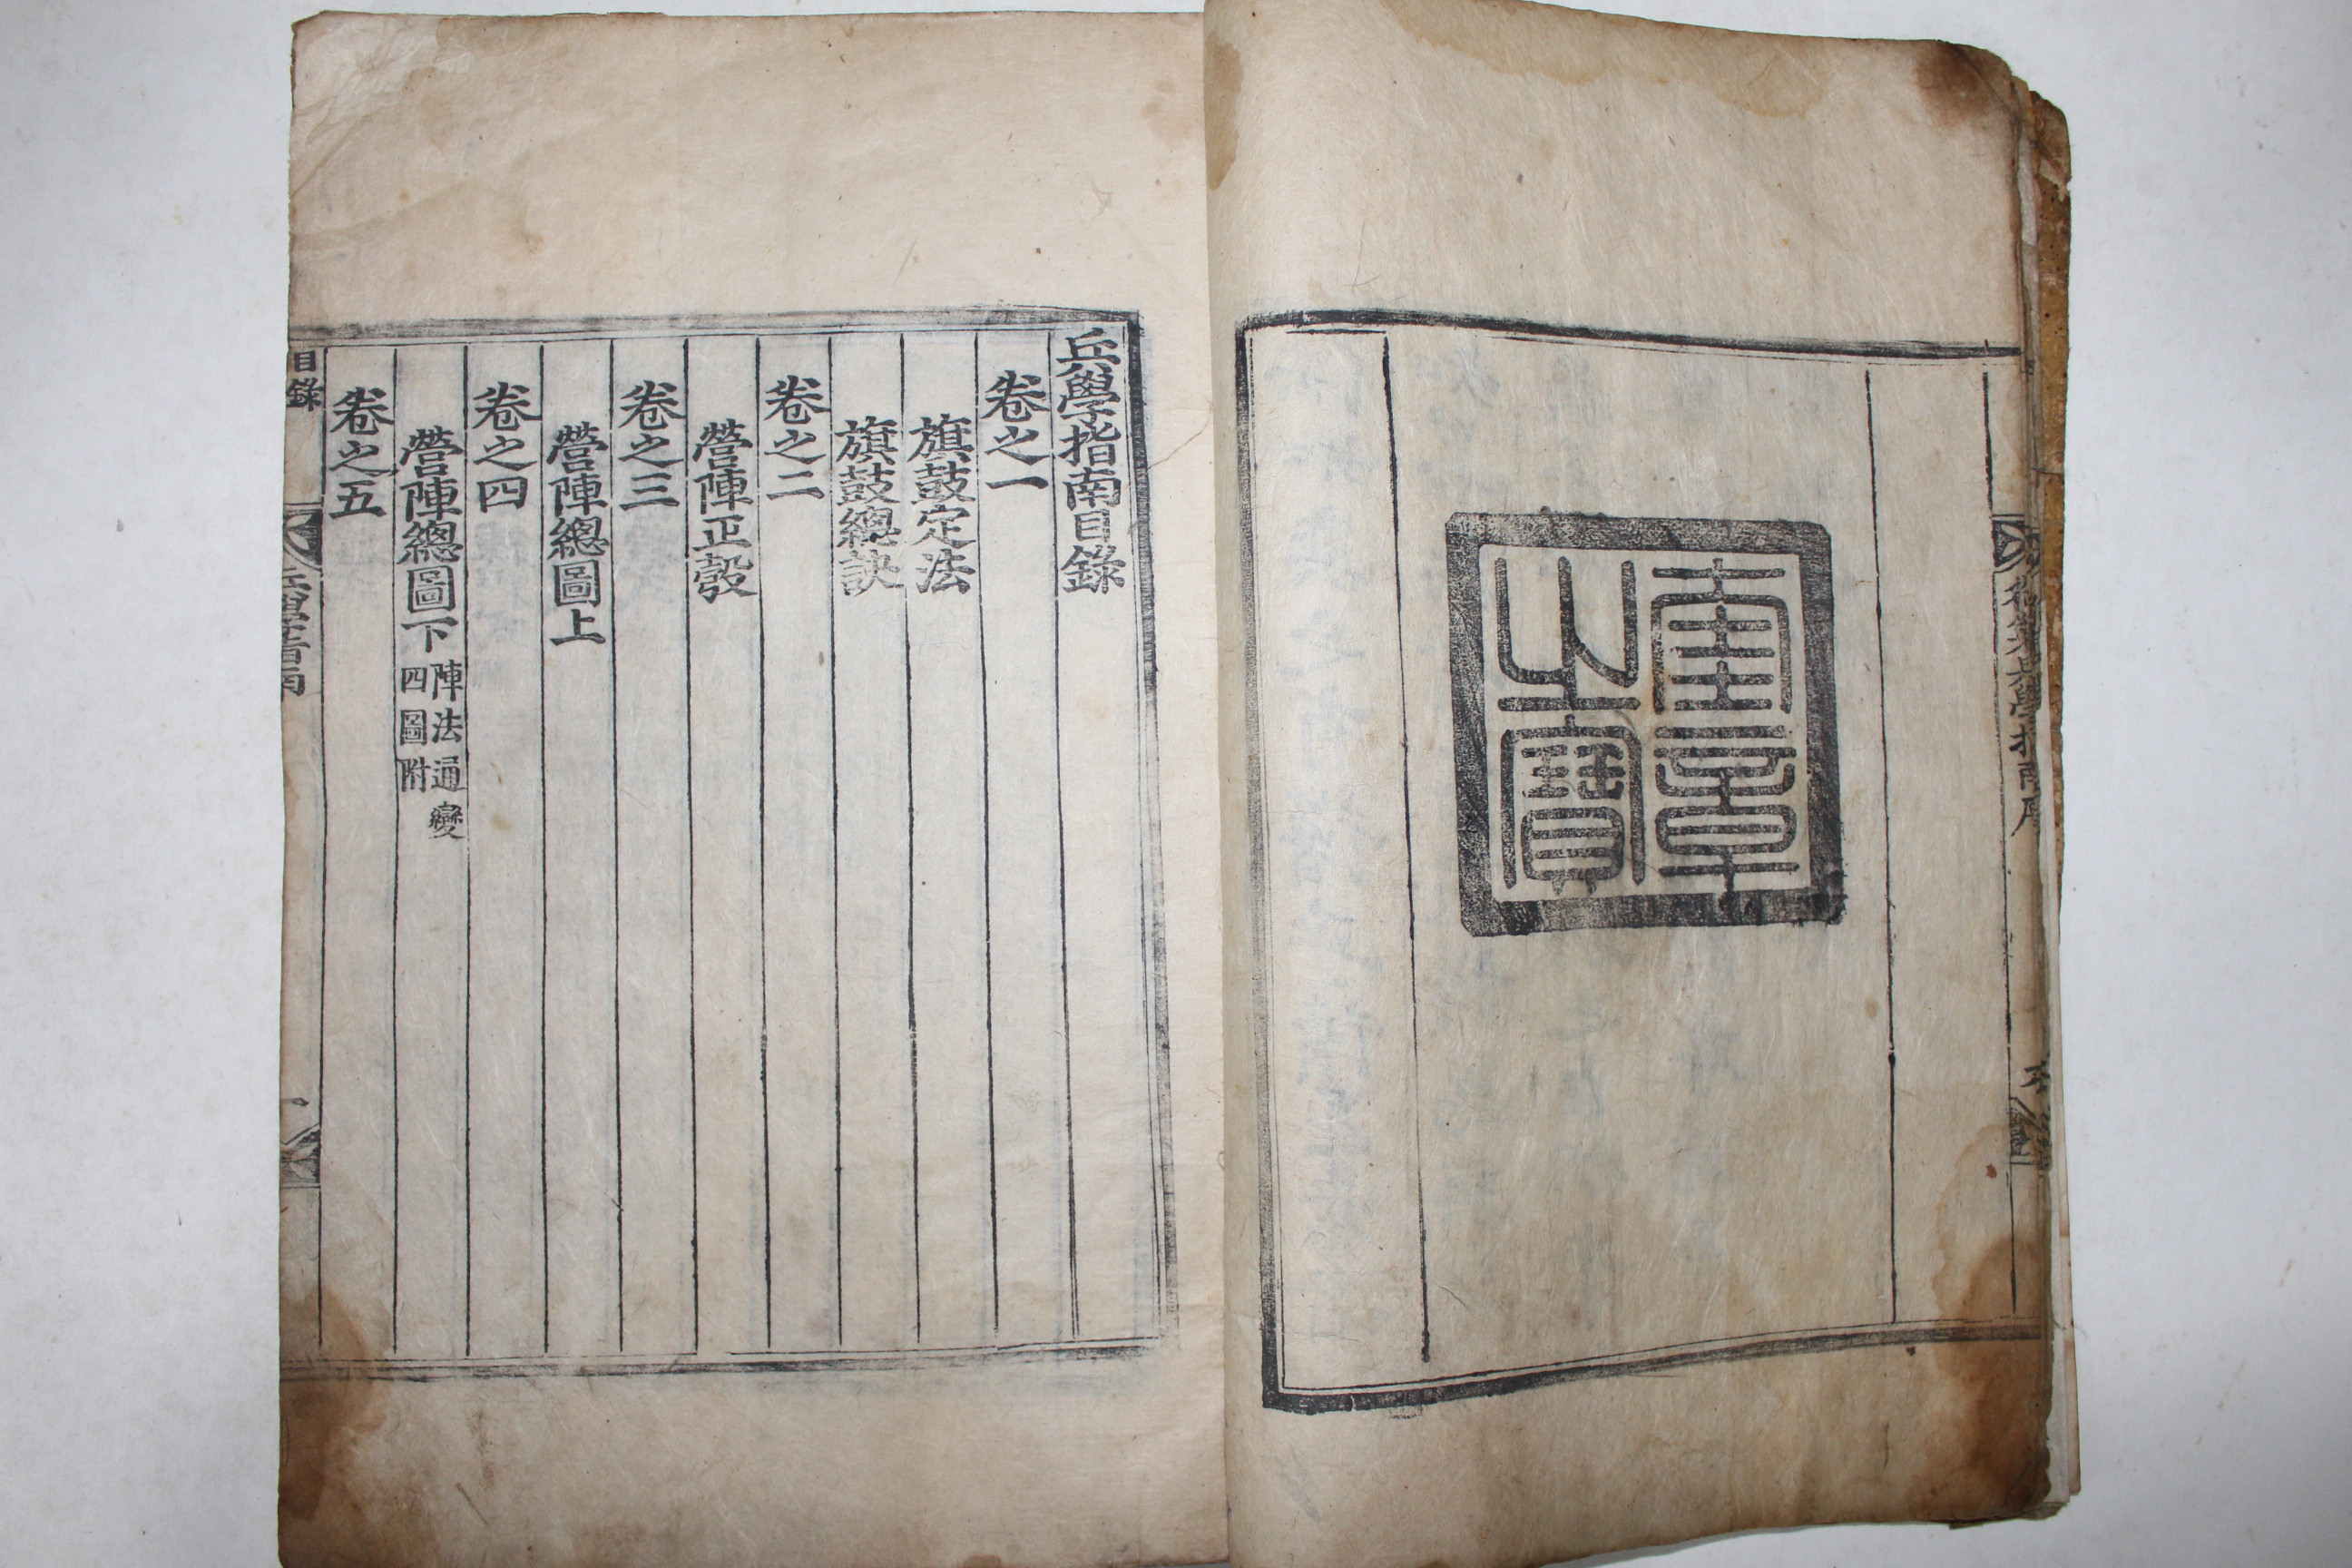 御製兵學指南序
六
奎章
之寶
兵學指南目錄
卷之一
旗鼓定法
旗鼓總訣
卷之二
營陣正彀
卷之三
營陣總圖上
卷之四
營陣總圖下 陣法通變
四圖附
卷之五
目錄
兵學指南
一